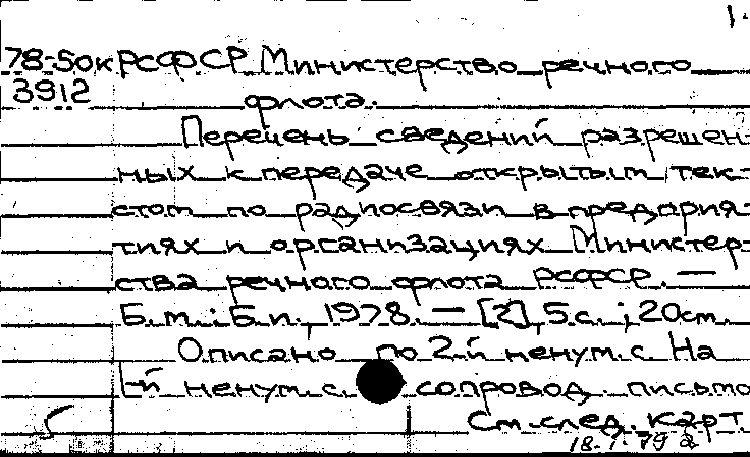 1.
78-50к РСФСР Министерство речного
3912 флота.
Перечень сведений разрешен-
ных к передаче открытым тек-
стом по радиосвязи в предприя-
тиях и организациях Министер-
ства речного флота РСФСР. —
Б.м.: Б.и., 1978. — [2], 5 с.; 20 см.
Описано по 2-й ненум. с. На
1-й ненум. с. сопровод. письмо
См. след. карт
18.7.79